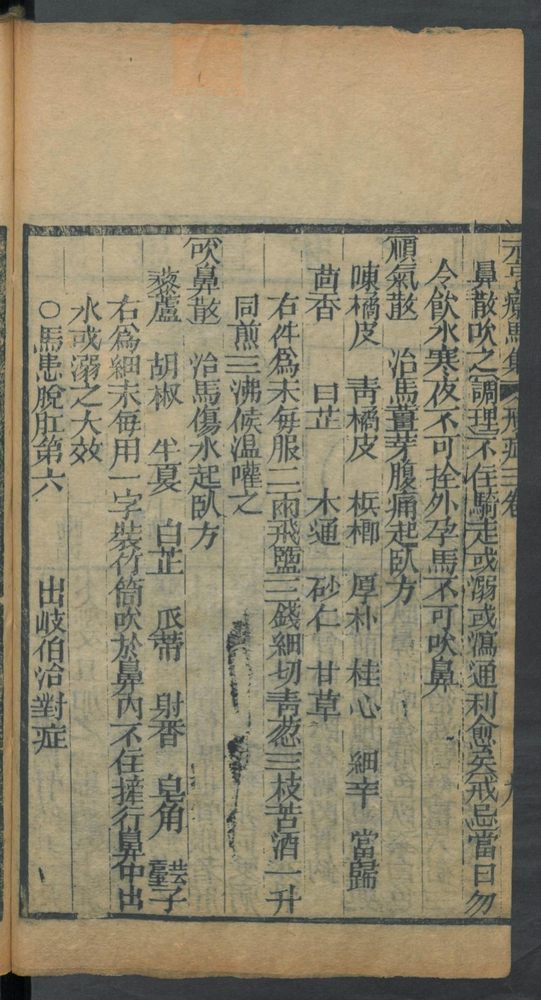 元亨療馬集 病症三卷 九
鼻散吹之調理不住騎走或溺或瀉通利愈矣戒忌當日勿
令飲水寒夜不可拴外孕馬不可吹鼻
順氣散 治馬薑芽腹痛起卧方
陳橘皮 靑橘皮 梹榔 厚朴 桂心 細辛 當歸
茴香 白芷 木通 砂仁 甘草
右件爲末每服二兩飛鹽三錢細切靑葱三枝苦酒一升
同煎三沸候温嚾之
吹鼻散 治馬傷水起卧方
藜蘆 胡椒 半夏 白芷 瓜蒂 射香 皂角 芸薹子
右爲細末每用一字裝竹筒吹於鼻內不住擁行鼻中出
水或溺之大效
○馬患脫肛第六 出岐伯治對症